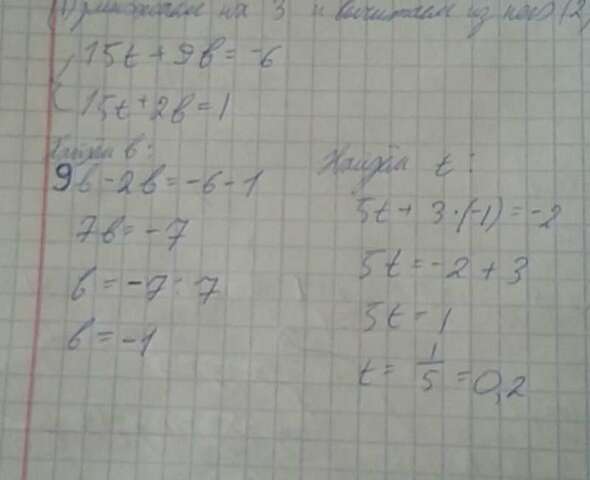 (1) умножаем на 3 и вычитаем из него (2)
15t + 9b = -6
15t + 2b = 1
Найдём b:
9b - 2b = -6 - 1
7b = -7
b = -7 : 7
b = -1
Найдём t:
5t + 3·(-1) = -2
5t = -2 + 3
5t = 1
t = 1/5 = 0,2